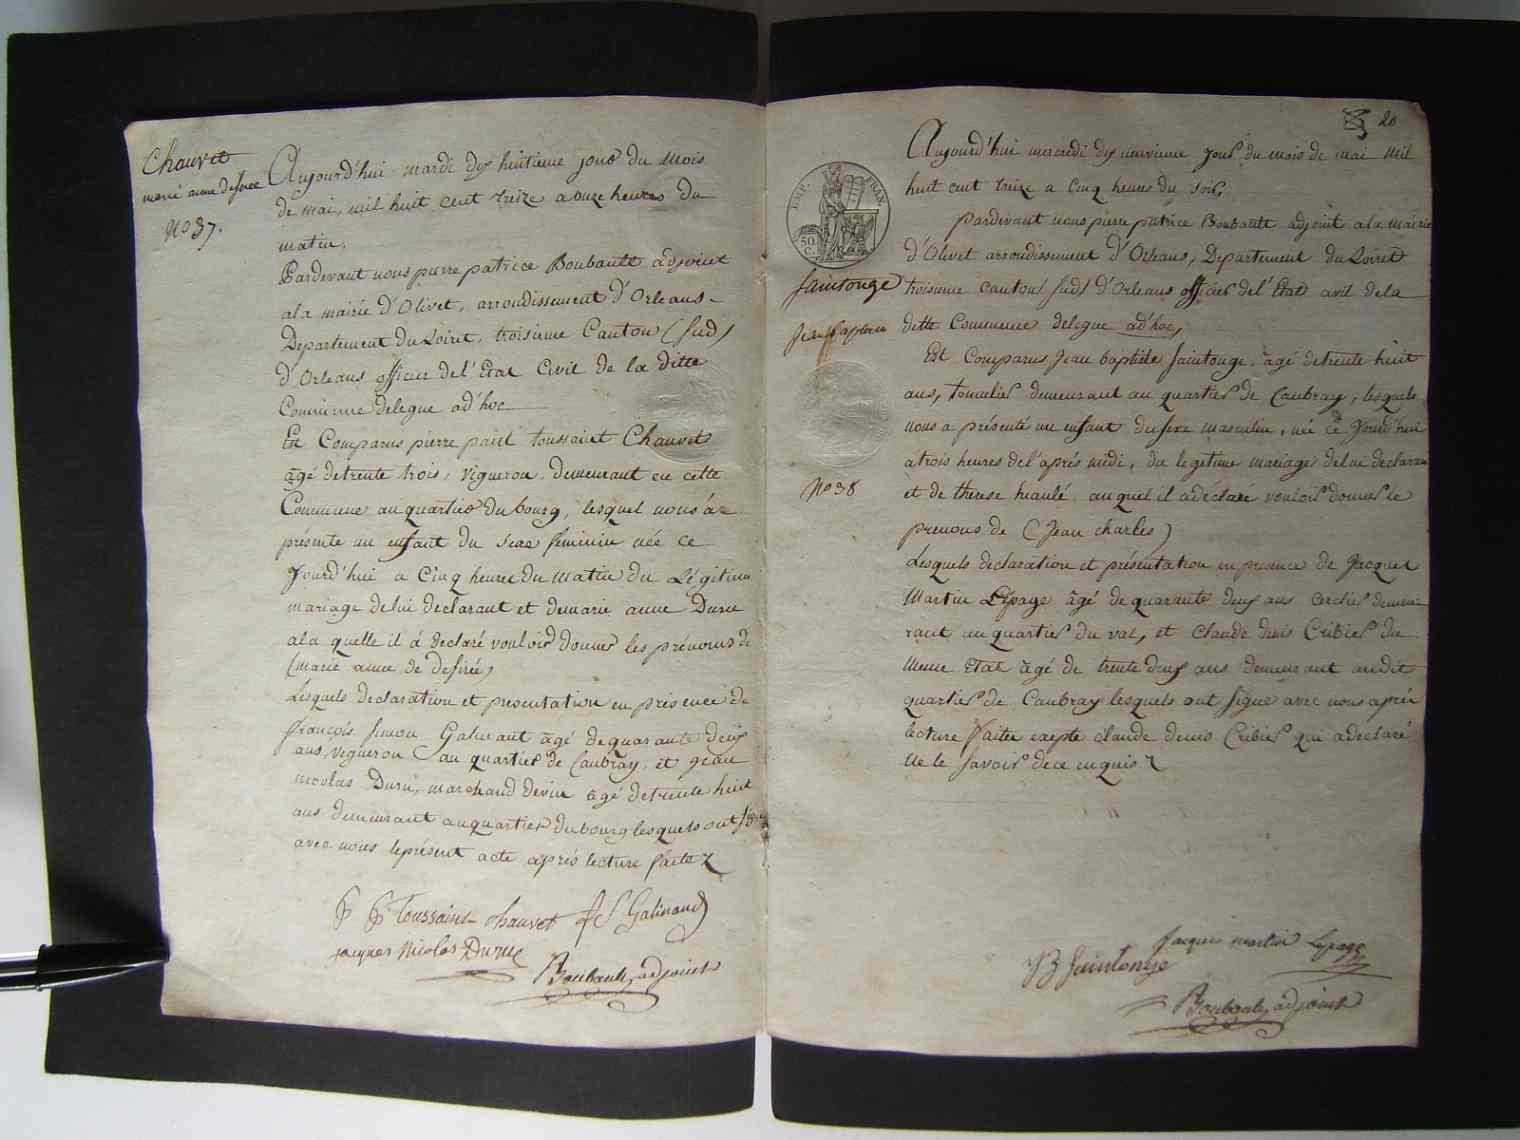 Chauvet
marie anne desirée
No 37.
Aujourd'hui mardi dix huitieme jour du Mois
de Mai, mil huit cent treize a onze heures du
matin.
Pardevant nous pierre patrice Boubault adjoint
ala mairie d'Olivet, arrondissement d'Orleans
Departement du Loiret, troisieme Canton (sud)
d'Orleans officier del'Etat Civil de la ditte
Commune delegue ad'hoc
Est Comparus pierre paul toussaint Chauvet
âgé detrente trois, vigneron, demeurant en cette
Commune auquartier du bourg, lesquel nous á
présente un enfant du sexe féminin née ce
jourd'hui a Cinq heures du Matin du Légitime
mariage delui declarant et demarie anne Duru
ala quelle il á declaré vouloir donner les prénoms de
(marie anne de desirée)
Lesquels declaration et presentation en présence de
françois simon Galinant âgé dequarante deux
ans, vigneron au quartier de Caubray, et jean
nicolas Duru, marchand devin âgé detrente huit
ans demeurant auquartier dubourg lesquels ont signé
avec nous leprésent acte aprés lecture faite
P P Toussaint chauvet f S Galinand
jacques Nicolas Duru
Boubault, adjoint
20
EMP. FRAN.
50 C.
Saintonge
Jean baptiste
No 38
Aujourd'hui mercredi dix neuvieme jour du mois de mai mil
huit cent treize a cinq heures du soir,
Pardevant nous pierre patrice Boubault adjoint ala mairie
d'Olivet arrondissement d'Orleans, Departement du Loiret
troisieme canton (sud) d'Orleans officier del'Etat civil dela
ditte Commune delegue ad'hoc,
Est Comparus Jean baptiste saintonge, âgé detrente huit
ans, tonnelier demeurant au quartier de Caubray, lesquels
nous a présenté un enfant dusexe masculin, né ce jourd'hui
atrois heures del'aprés midi, du legitime mariage delui declarant
et de therese hiaulé auquel il adéclaré vouloir donner le
prenons de (Jean charles)
Lesquels declaration et présentation en presence de Jacques
Martin Lépage âgé de quarante deux ans cerclier demeu-
rant au quartier du val, et claude denis Cribier du
meme Etat âgé de trente deux ans demeurant audit
quartier de Caubray lesquels ont signe avec nous aprés
lecture faite exepte claude denis Cribier qui adeclaré
ne le savoir dece enquis
jacques martin Lepage
JB Saintonge
Boubault, adjoint